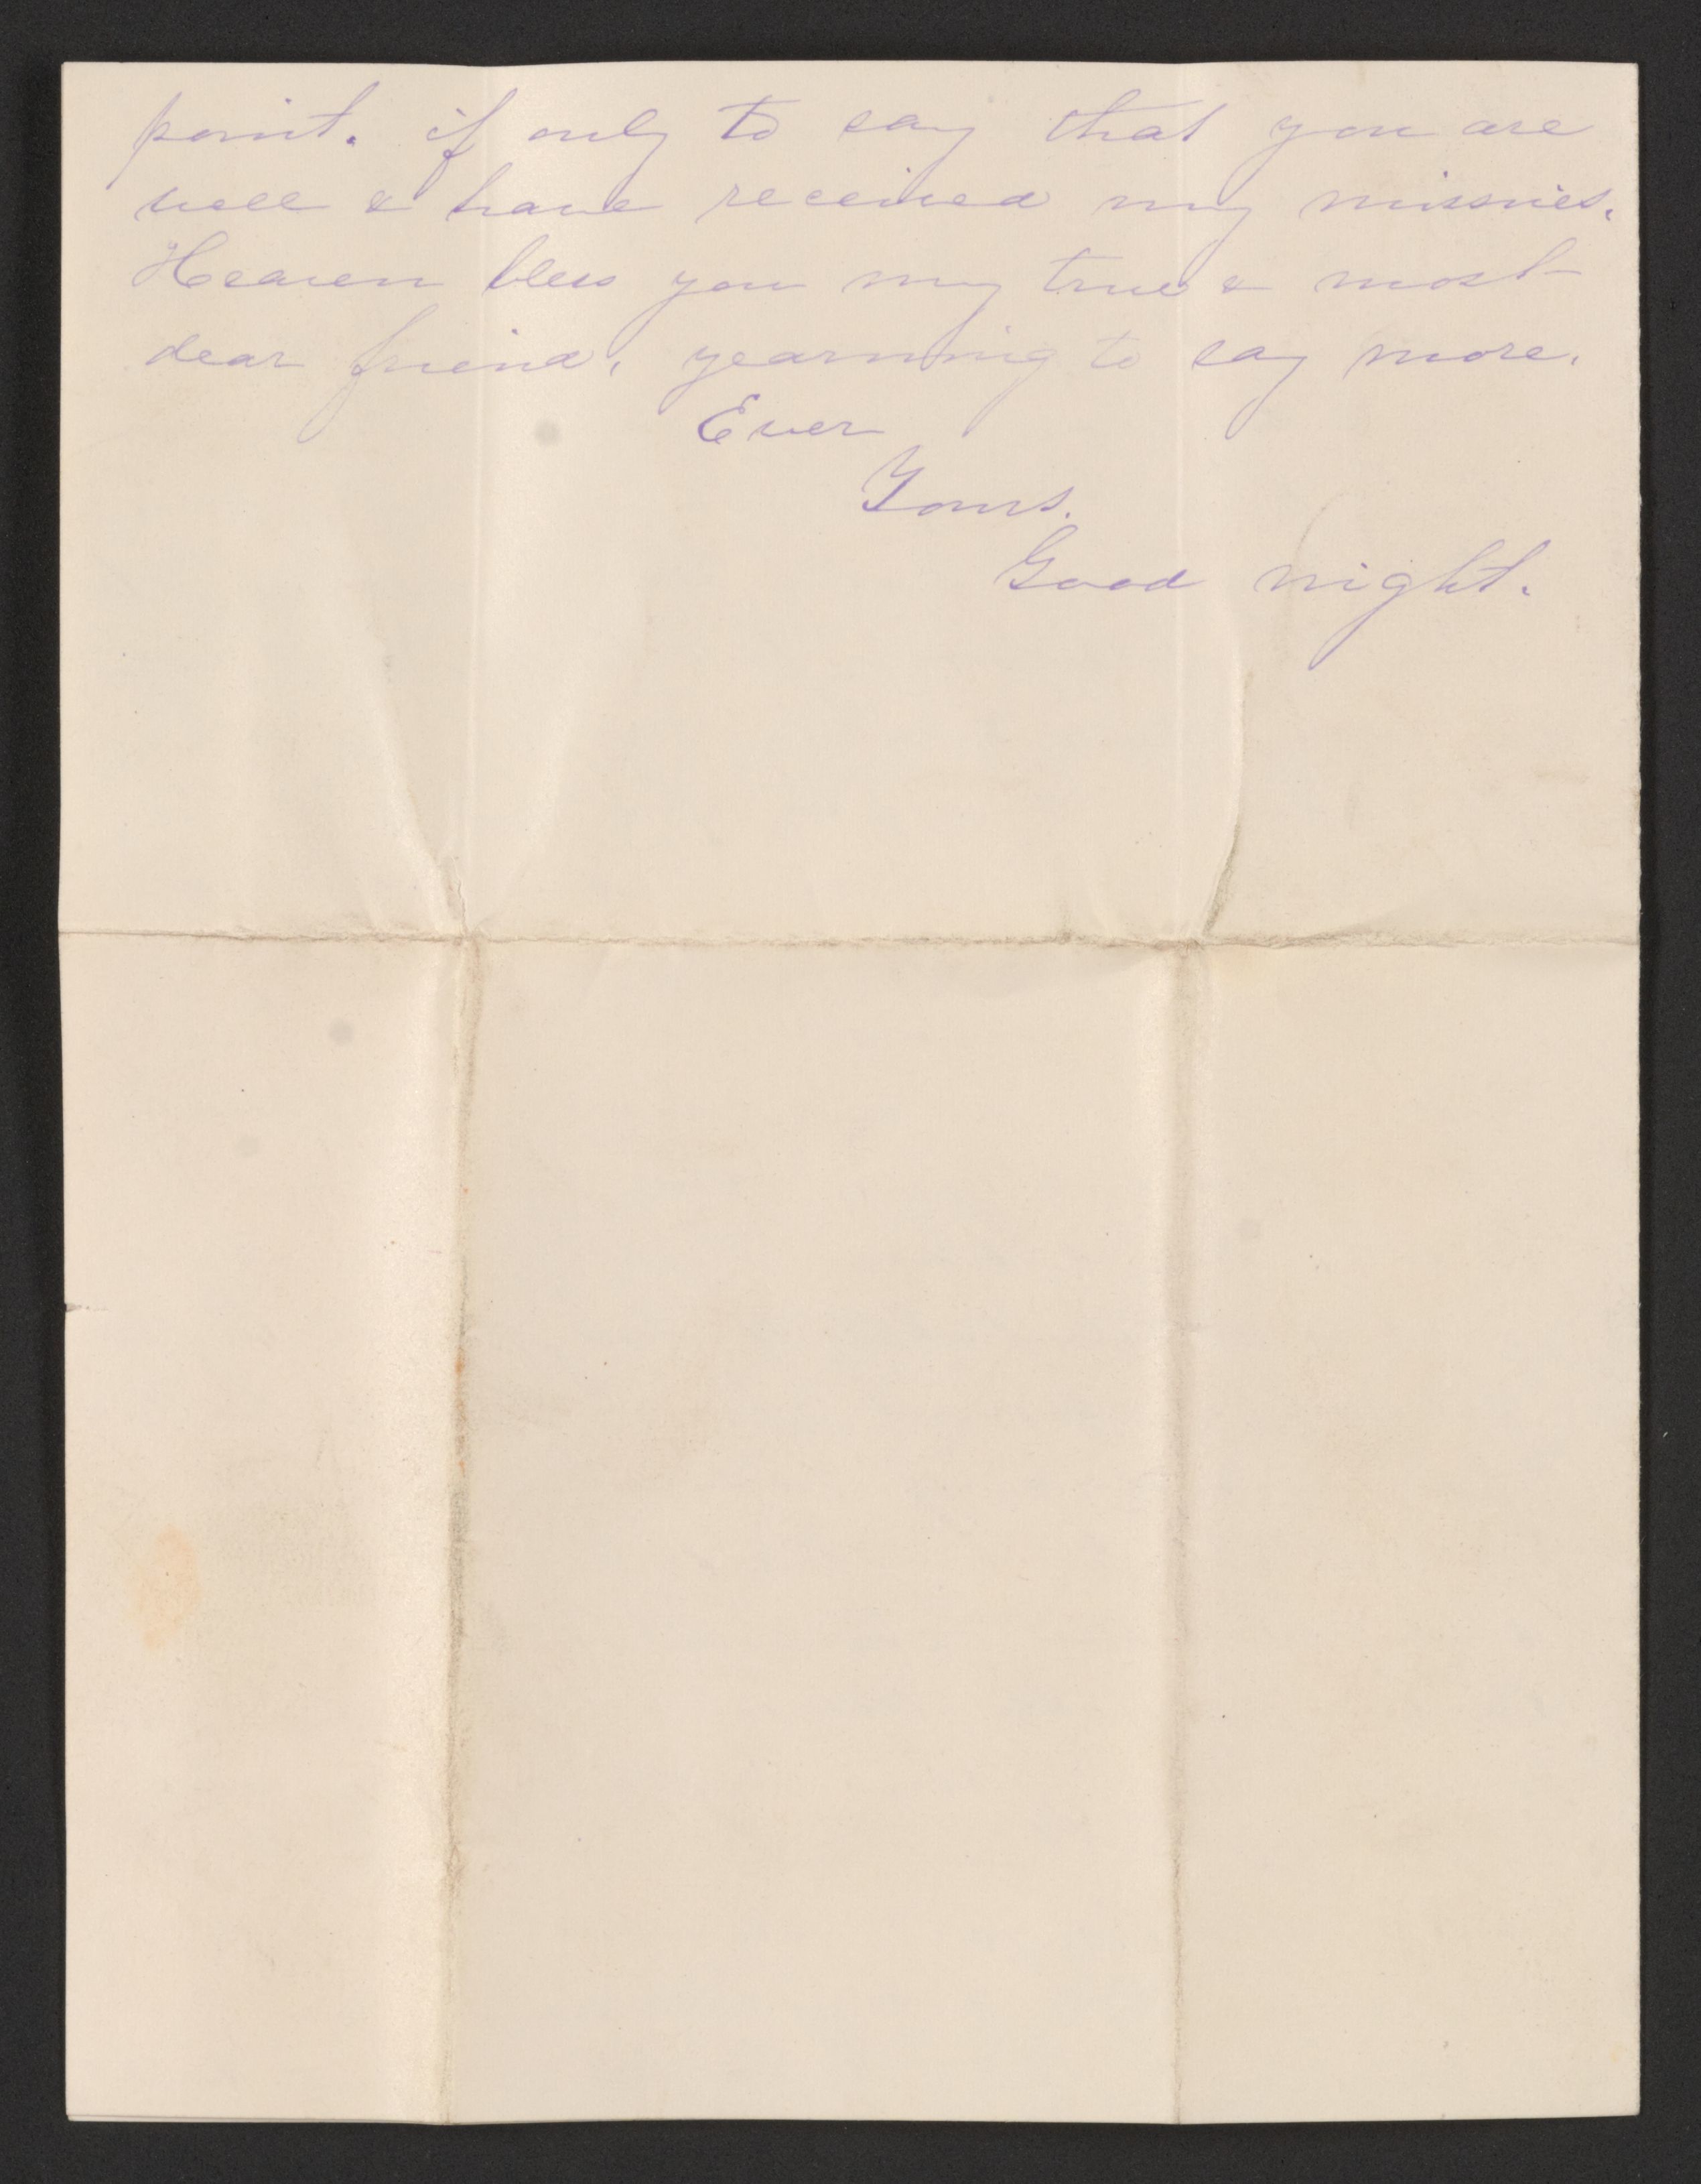 point. if only to say that you are
well & have received my missives.
Heaven bless you my true & most
dear friend, yearning to say more.
Ever
Yours.
Good night.